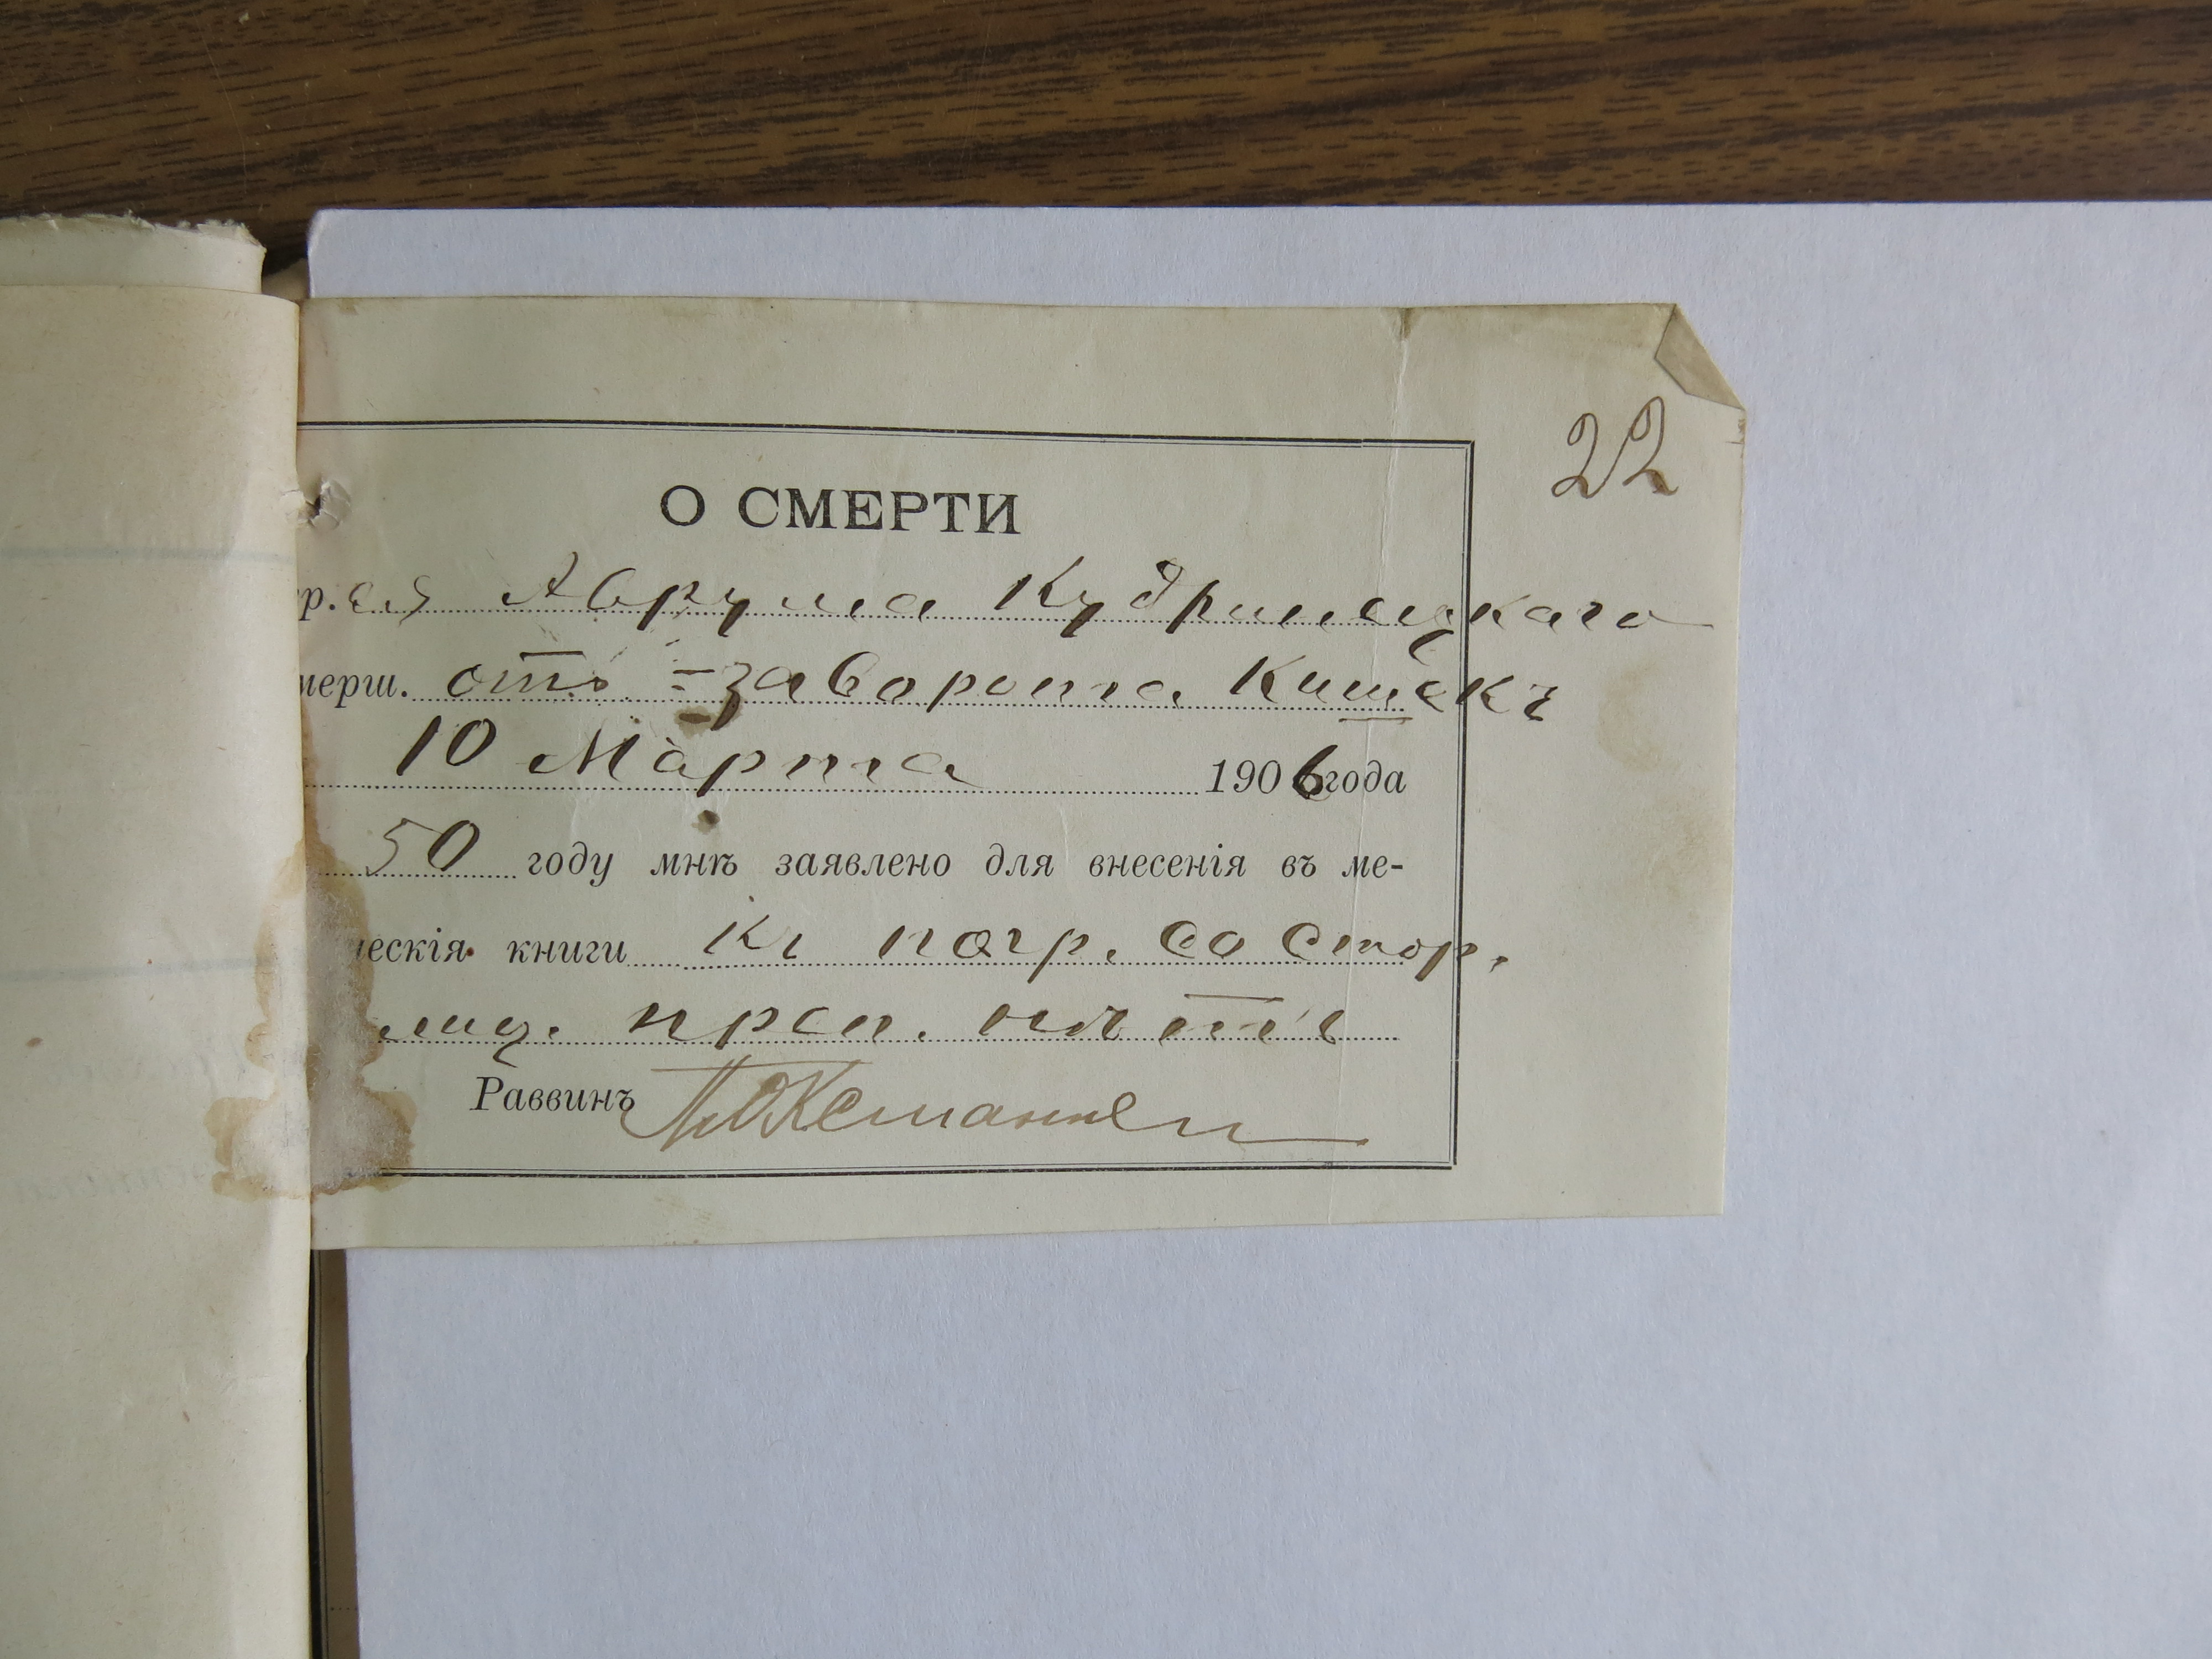 22
О СМЕРТИ
р. ея Аврума Кудринецкаго
мерш. отъ = заворота кишекъ
10 Марта 1906 года
50 году мнѣ заявлено для внесенія въ ме-
ческія книги къ погр. со стор.
полиц. преп. нѣтъ
Раввинъ